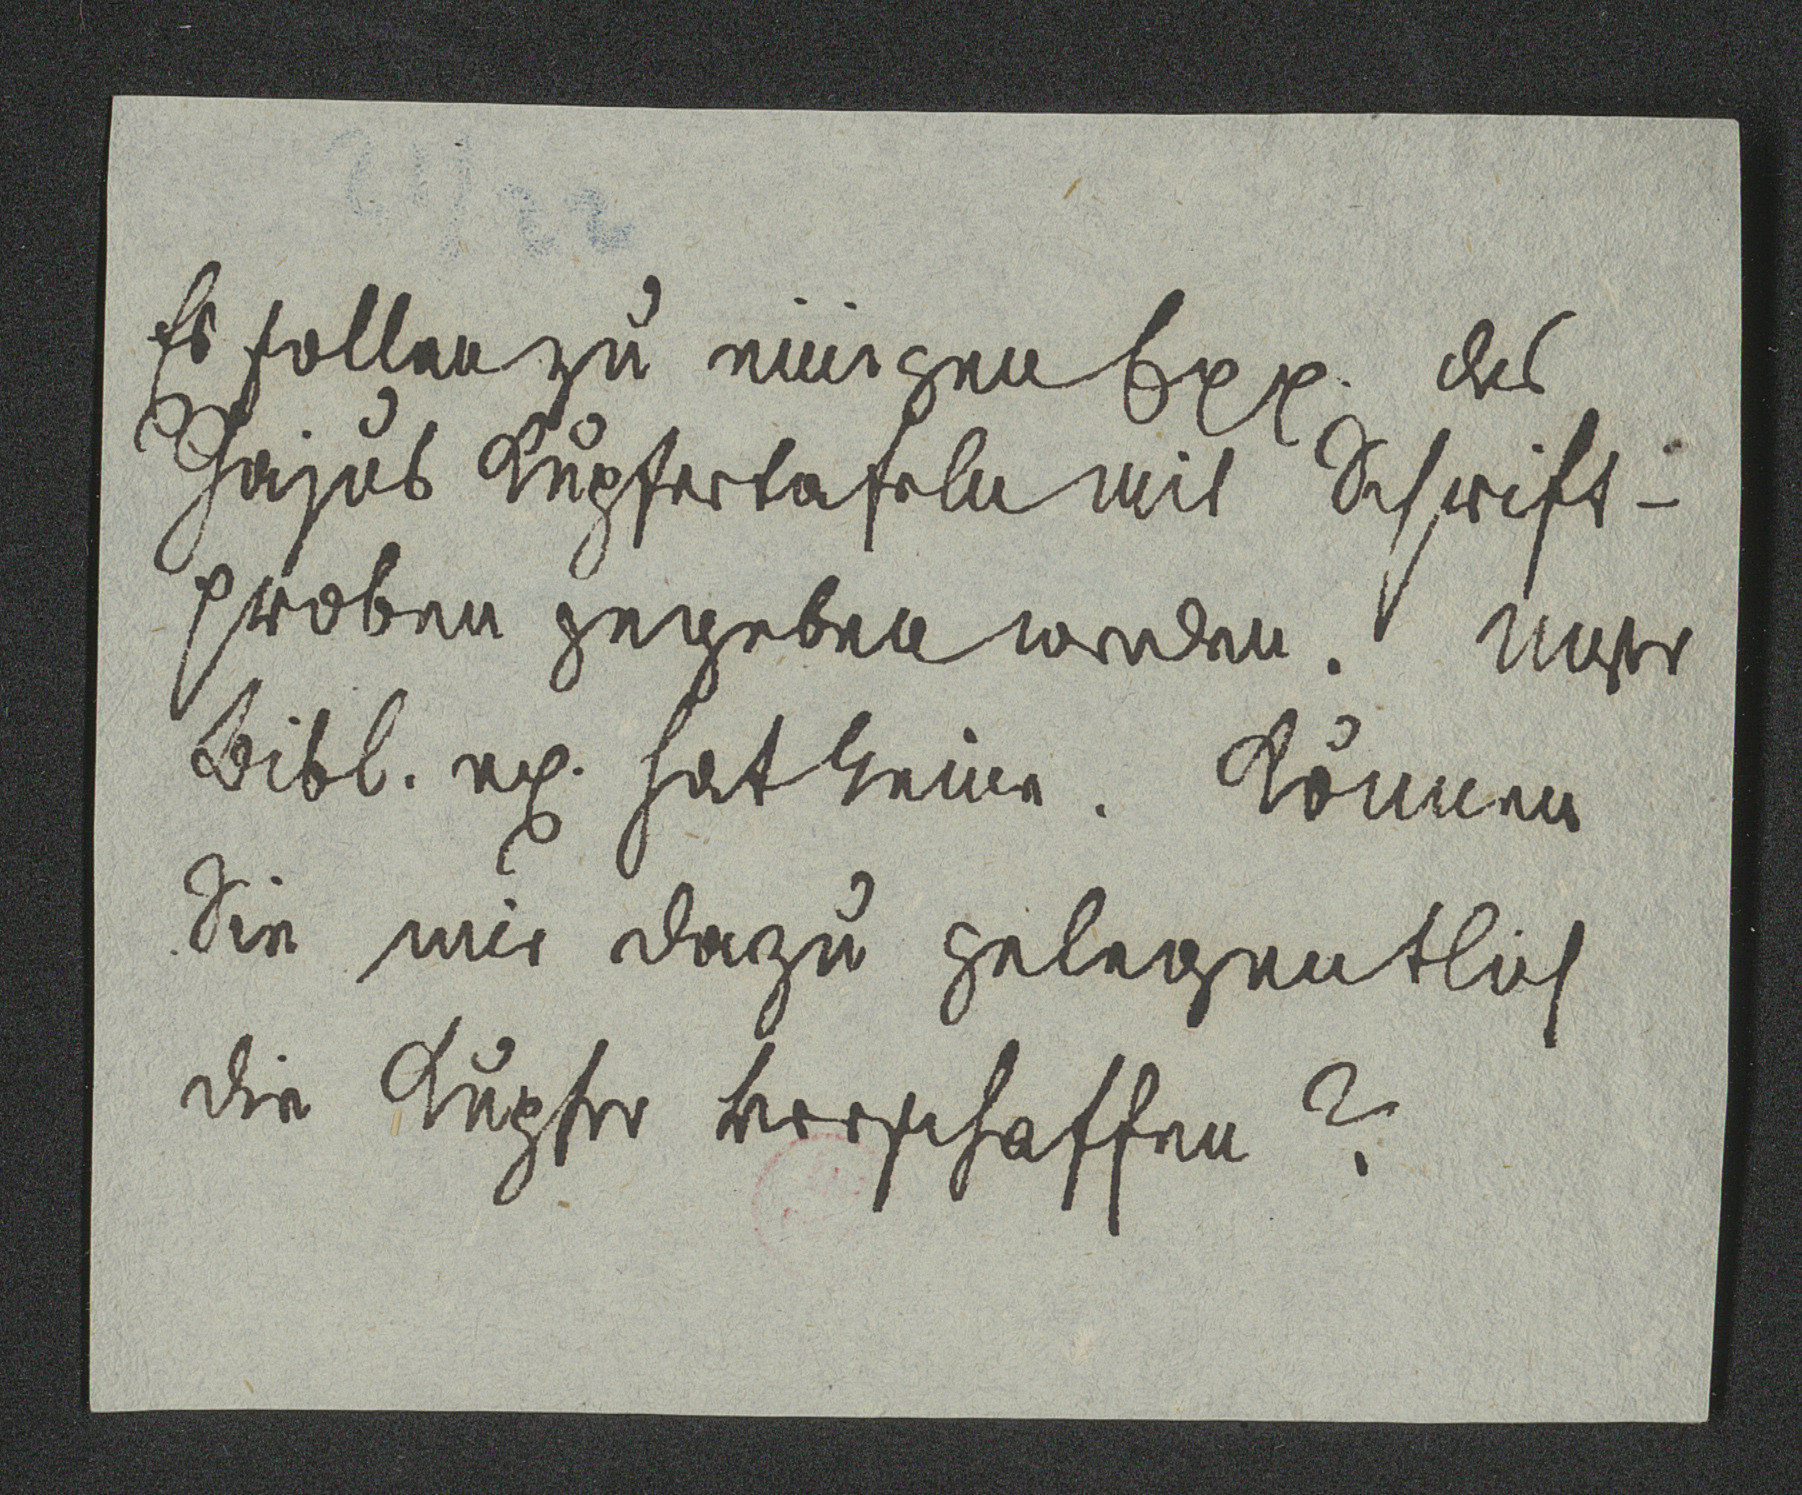 Es sollen zu einigen Exx. des
Gajus Kupfertafeln mit Schrift-
proben gegeben werden. Unser
Bibl. ex. hat keine. Können
Sie mir dazu gelegentlich
die Kupfer verschaffen?